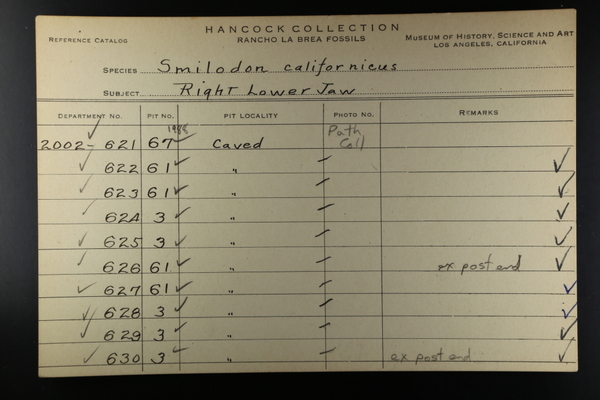 HANCOCK COLLECTION
REFERENCE CATALOG RANCHO LA BREA FOSSILS MUSEUM OF HISTORY, SCIENCE AND ART
LOS ANGELES, CALIFORNIA
SPECIES Smilodon californicus
SUBJECT Right Lower Jaw
DEPARTMENT NO. PIT NO. PIT LOCALITY PHOTO NO. REMARKS
2002- 621 67 Caved Path Coll
622 61 "
623 61 "
624 3 "
625 3 "
626 61 " ex post end
627 61 "
628 3 "
629 3 "
630 3 " ex post end